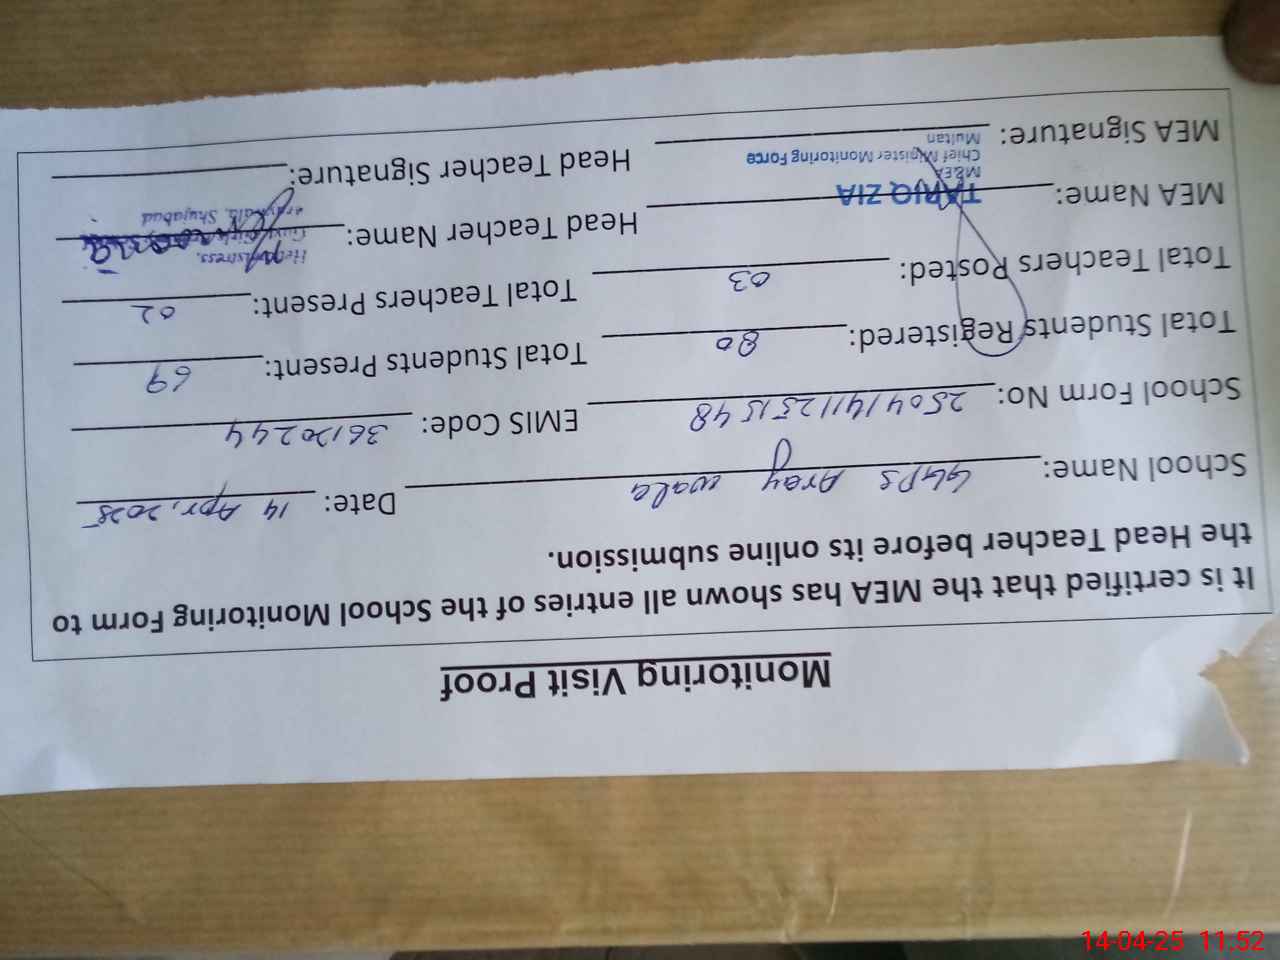 Monitoring Visit Proof
It is certified that the MEA has shown all entries of the School Monitoring Form to
the Head Teacher before its online submission.
School Name: GGPS Aray wala Date: 14 Apr, 2025
School Form No: 25041411251548 EMIS Code: 36120244
Total Students Registered: 80 Total Students Present: 69
Total Teachers Posted: 03 Total Teachers Present: 02
MEA Name: TARIQ ZIA Head Teacher Name:
M&EA
Chief Minister Monitoring Force
Multan
Shujabad
MEA Signature: Head Teacher Signature:
14-04-25 11:52